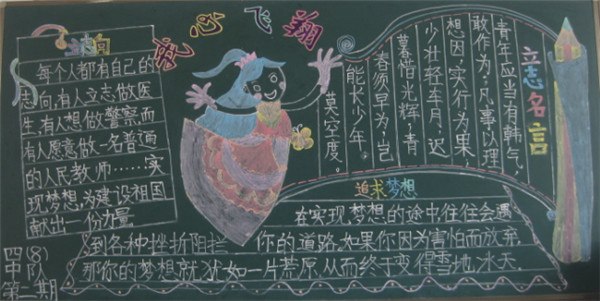 心飞翔
志向
每个人都有自己的
志向,有人立志做医
生,有人想做警察,而
有人愿意做一名普通
的人民教师……实
现梦想,为建设祖国
献出一份力量
立志名言
青年应当有朝气,
敢作为。凡事以理
想因,实行为果。
少壮轻年月,迟
暮惜光辉。青
春须早为,岂
能长少年。
莫空度。
追求梦想
在实现梦想的途中往往会遇
到各种挫折阻拦 你的道路,如果你因为害怕而放弃,
那你的梦想就犹如一片荒原,从而终于变得雪地冰天。
四(8)
中队
第二期